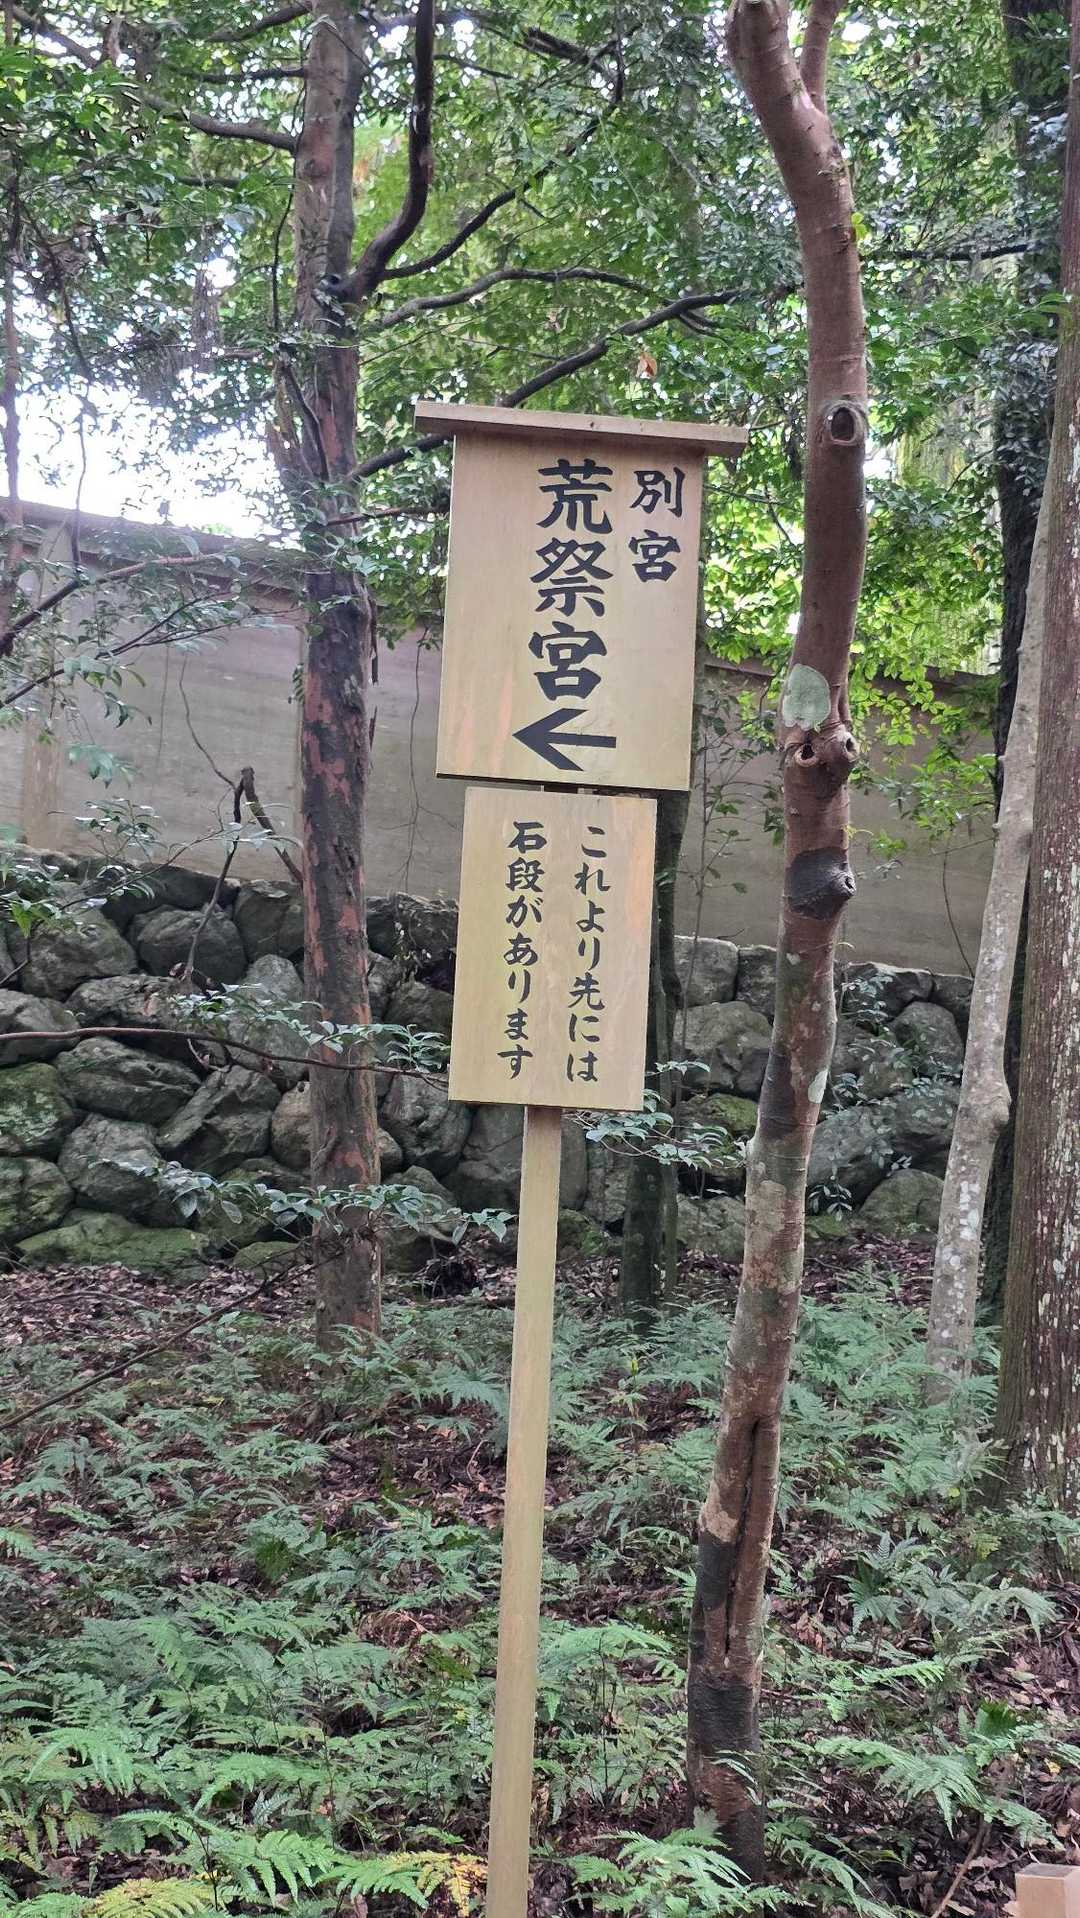 別宮
荒祭宮
←
これより先には
石段があります